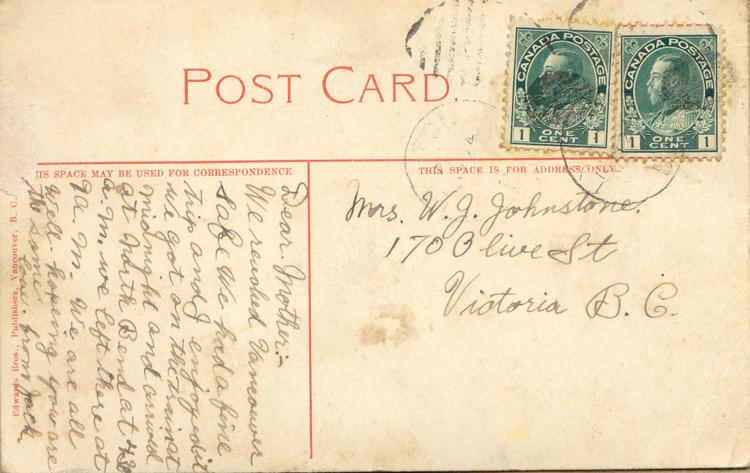 POST CARD.
CANADA POSTAGE
1 ONE CENT 1
CANADA POSTAGE
1 ONE CENT 1
THIS SPACE MAY BE USED FOR CORRESPONDENCE
THIS SPACE IS FOR ADDRESS ONLY
Mrs. W. J. Johnstone.
170 Olive St
Victoria B. C.
Dear Mother:-
We reached Vancouver
safe We had a fine
trip and I enjoyed it
we got on the train at
midnight and arrived
at North Bend at
a. m. we left there at
A. M. We are all
well hoping you are
the same. from Jack
Edwards Bros., Publishers, Vancouver, B. C.